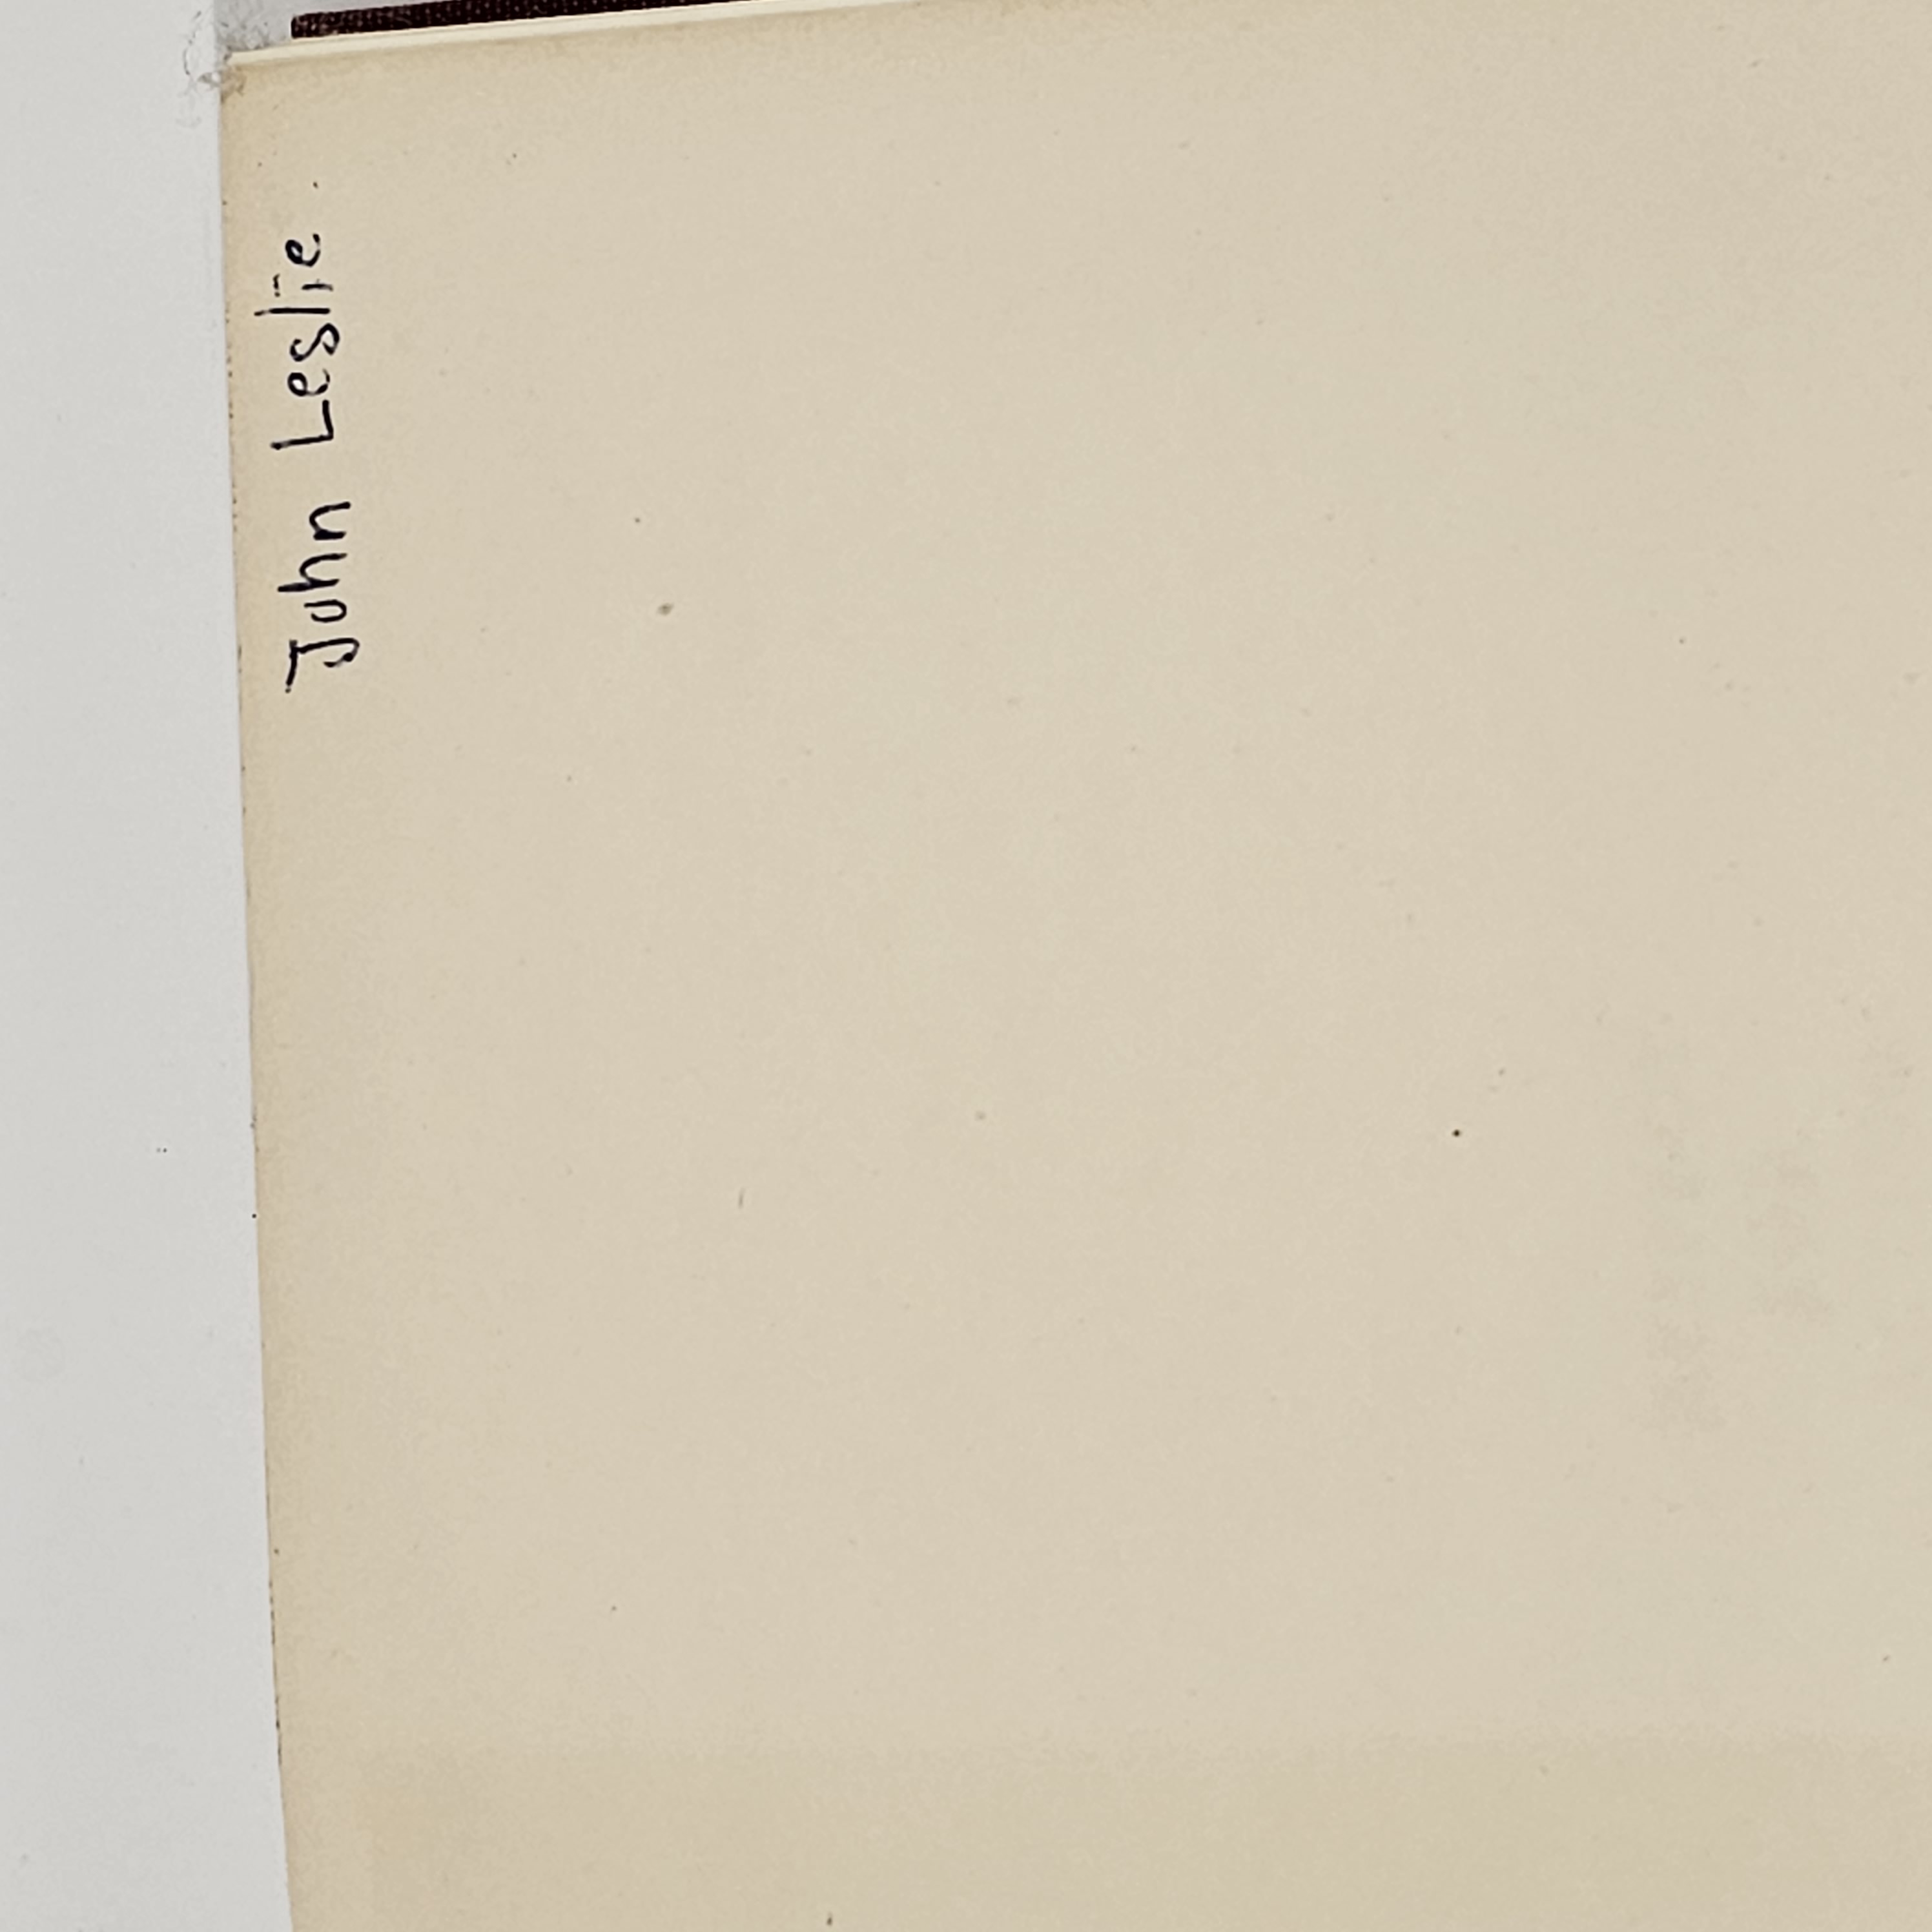 John Leslie.